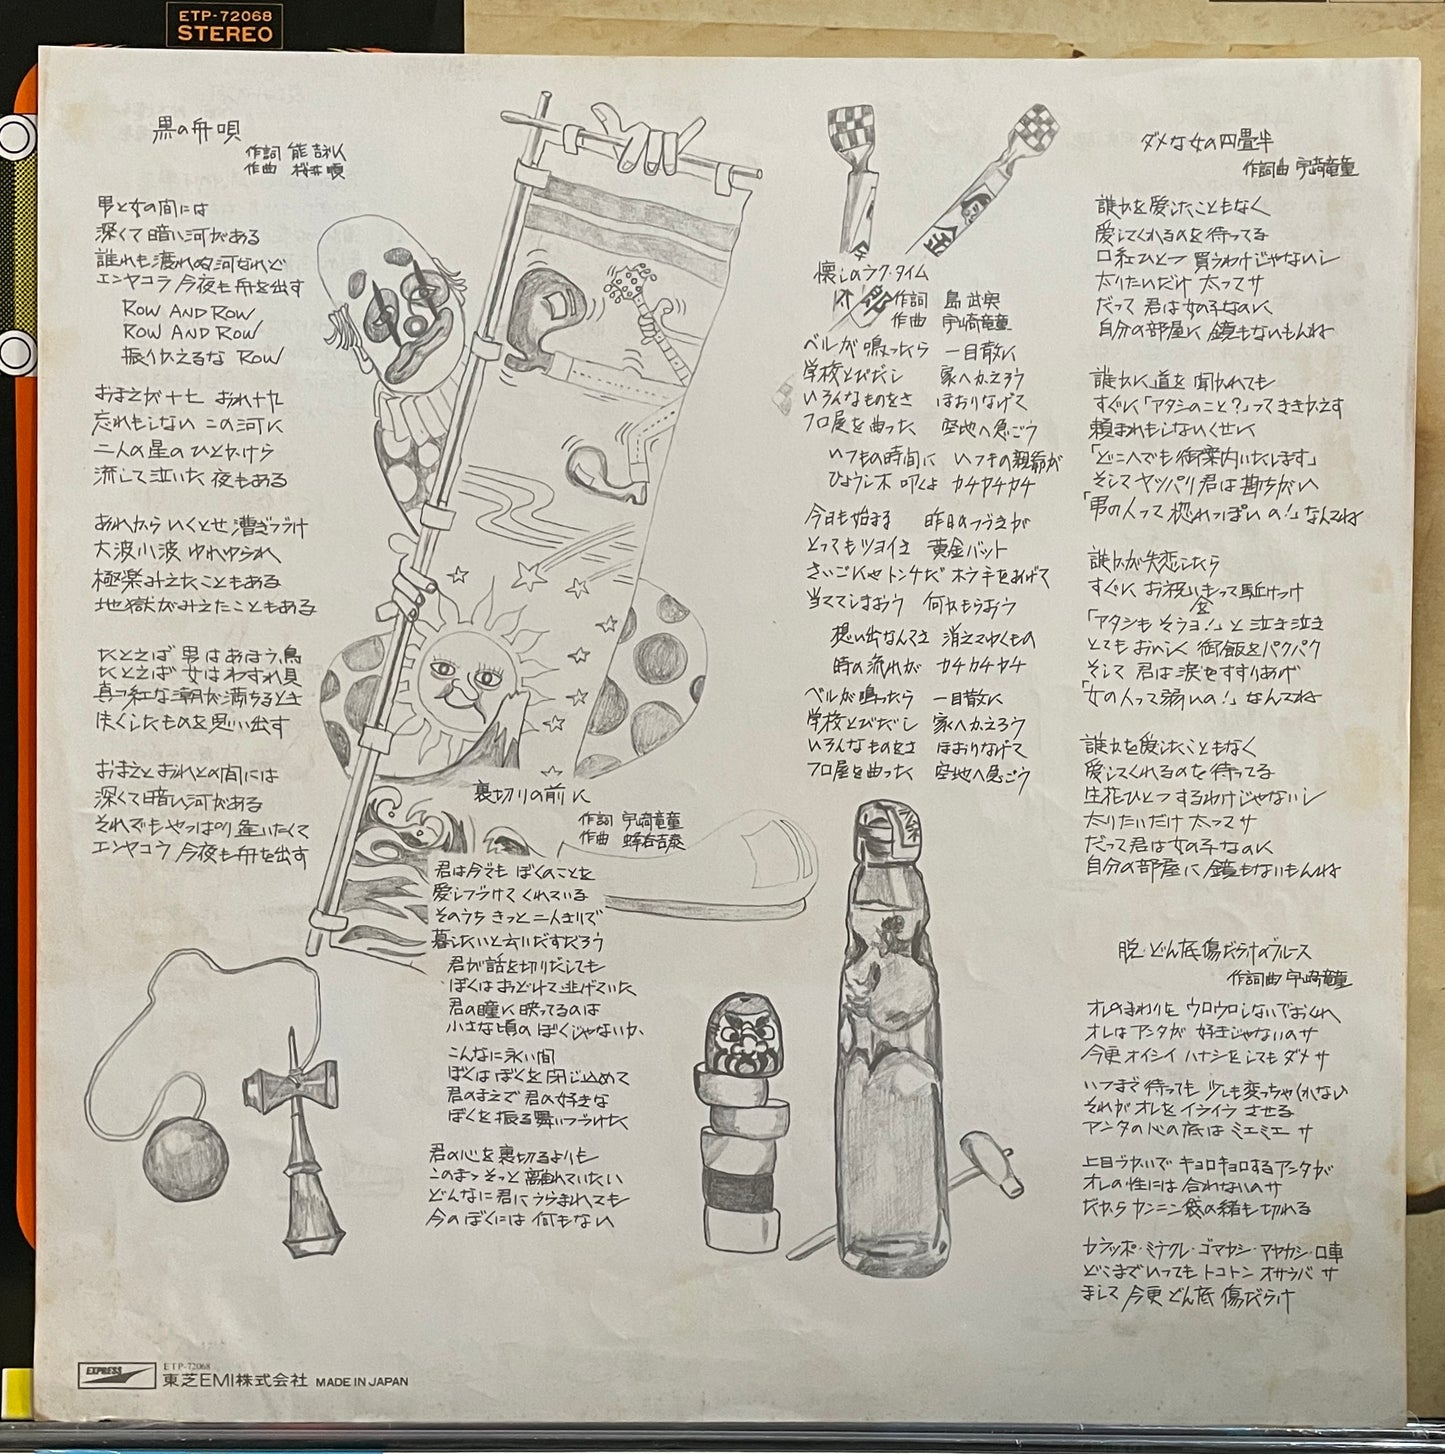 ETP-72068
STEREO
黒の舟唄
作詞 能吉利人
作曲 桜井順
男と女の間には
深くて暗い河がある
誰れも渡れぬ河なれど
エンヤコラ 今夜も舟を出す
ROW AND ROW
ROW AND ROW
振りかえるな ROW
おまえが十七 おれ十九
忘れもしない この河に
二人の星の ひとかけら
流して泣いた 夜もある
あれから いくとせ 漕ぎつづけ
大波小波 ゆれゆられ
極楽みえたこともある
地獄がみえたこともある
たとえば 男は あほう鳥
たとえば 女は わすれ貝
真っ紅な潮が満ちるとき
失くしたものを思い出す
おまえとおれとの間には
深くて暗い河がある
それでもやっぱり 逢いたくて
エンヤコラ 今夜も舟を出す
裏切りの前に
作詞 宇崎竜童
作曲 蜂谷吉泰
君は今でも ぼくのことを
愛しつづけて くれている
そのうち きっと 二人きりで
暮したいと云いだすだろう
君が話を切りだしても
ぼくは おどけて 逃げていた
君の瞳に映ってるのは
小さな頃の ぼくじゃないか
こんなに永い間
ぼくは ぼくを閉じ込めて
君のまえで 君の好きな
ぼくを 振る舞いつづけた
君の心を裏切るよりも
このまっ そっと 離れていたい
どんなに君に うらまれても
今の ぼくには 何もない
懐しのラク・タイム
作詞 島 武興
作曲 宇崎竜童
ベルが 鳴ったら 一目散に
学校とびだし 家へかえろう
いろんなものをさ ほおりなげて
フロ屋を曲った 空地へ急ごう
いつもの時間に いつもの親爺が
ひょうし木 叩くよ カチカチカチ
今日も始まる 昨日のつづきが
とってもツヨイさ 黄金バット
さいごにゃ トンチだ ホラ手をあげて
当ててしまおう 何かもらおう
想い出なんてさ 消えてゆくもの
時の流れが カチカチカチ
ベルが鳴ったら 一目散に
学校とびだし 家へかえろう
いろんなものをさ ほおりなげて
フロ屋を曲った 空地へ急ごう
ダメな女の四畳半
作詞曲 宇崎竜童
誰かを愛したこともなく
愛してくれるのを待ってる
口紅ひとつ 買うわけじゃないし
太りたいだけ 太ってサ
だって 君は女の子なのに
自分の部屋に 鏡もないもんね
誰かに道を 聞かれても
すぐに「アタシのこと?」ってききかえす
頼まれもしないくせに
「どこへでも御案内いたします」
そして ヤッパリ君は勘ちがい
「男の人って 惚れっぽいの!」なんてね
誰かが失恋したら
すぐに お祝い金もって駈けつけ
「アタシも そうヨ!」と泣き泣き
とてもおいしく 御飯をパクパク
そして 君は涙をすすりあげ
「女の人って弱いの!」なんてね
誰かを愛したこともなく
愛してくれるのを待ってる
生花ひとつ するわけじゃないし
太りたいだけ 太ってサ
だって君は女の子なのに
自分の部屋に 鏡もないもんね
脱・どん底傷だらけのブルース
作詞曲 宇崎竜童
オレのまわりを ウロウロしないでおくれ
オレは アンタが 好きじゃないのサ
今更 オイシイ ハナシをしても ダメサ
いつまで 待っても 少しも変っちゃいない
それが オレを イライラ させる
アンタの心の底は ミエミエ サ
上目づかいで キョロキョロするアンタが
オレの性には 合わないのサ
だから カンニン袋の緒も切れる
カラッポ・ミテクレ・ゴマカシ・アヤカシ・口車
どこまでいっても トコトン オサラバ サ
まして 今更 どん底 傷だらけ
EXPRESS
ETP-72068
東芝EMI株式会社 MADE IN JAPAN